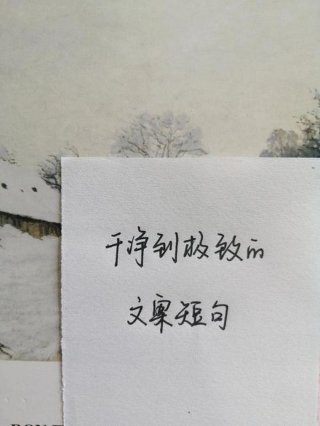 干净到极致的
文案短句